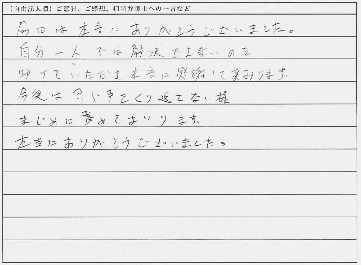 (自由記入欄)ご意見、ご感想、担当弁護士への一言など
今回は本当にありがとうございました。
自分一人では解決できないのを
助けていただき本当に感謝して実ります。
今後は同じ事をくり返さない様
まじめに努めてまいります。
本当にありがとうございました。